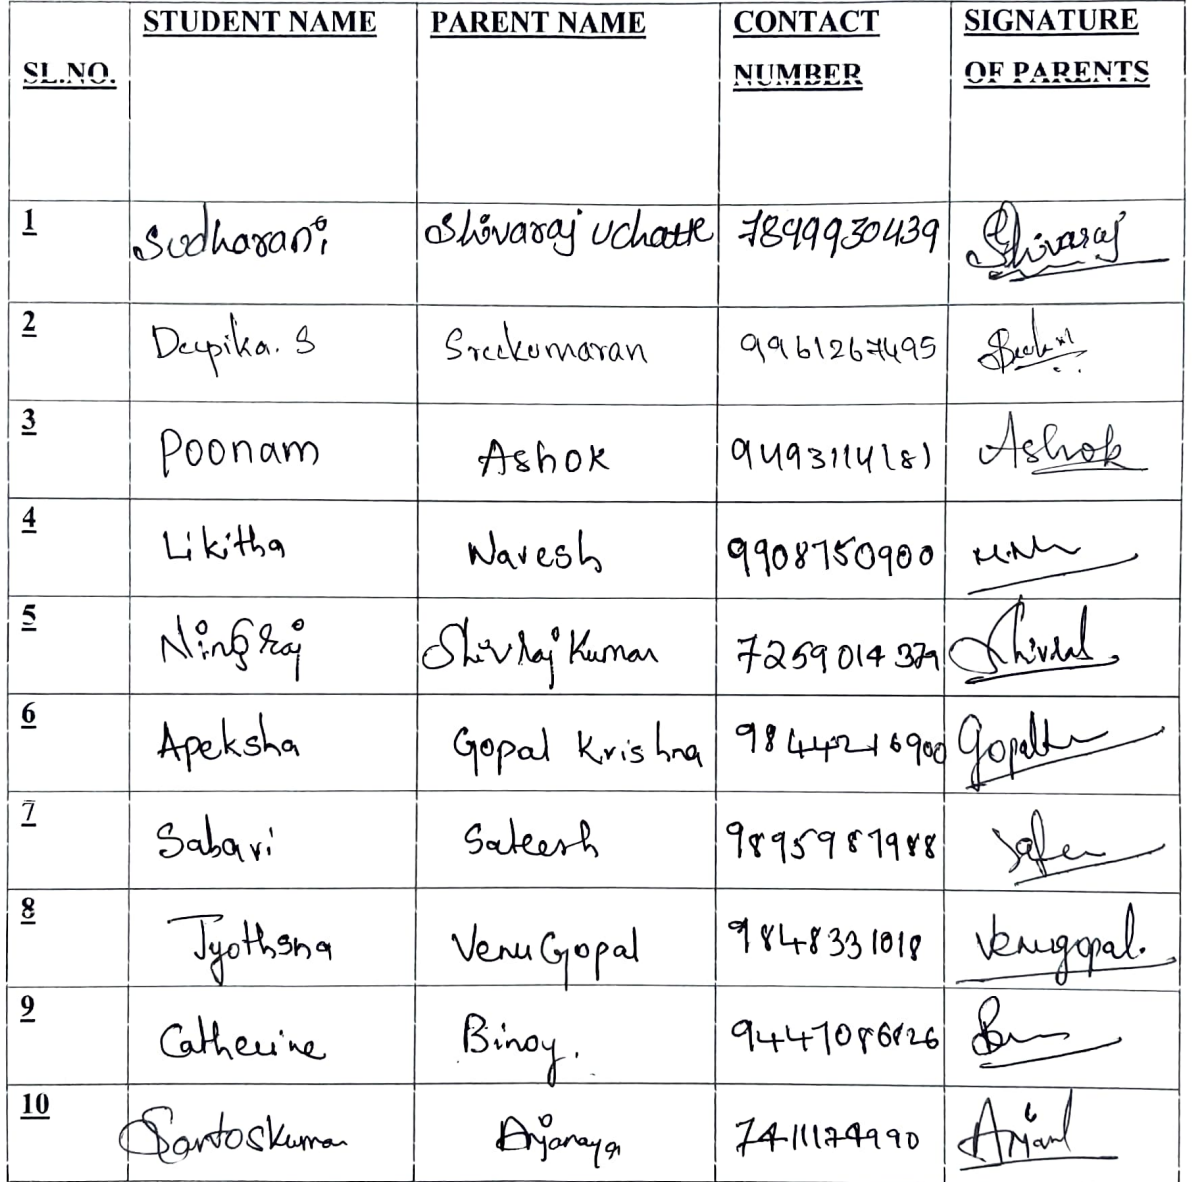 SL.NO. STUDENT NAME PARENT NAME CONTACT NUMBER SIGNATURE OF PARENTS
1 Sudharani Shivaraj Uchatte 7899930439 Shivaraj
2 Deepika. S Sreekumaran 9961267495
3 Poonam Ashok 9493114181 Ashok
4 Likitha Naresh 9908750900
5 Ningraj Shivraj Kumar 7259014379
6 Apeksha Gopal Krishna 9844216900
7 Sabari Sateesh 9895987988
8 Jyothsna VenuGopal 9848331018 Venugopal.
9 Catherine Binoy. 9447086826
10 Santoskumar Anjanaya 7411174990